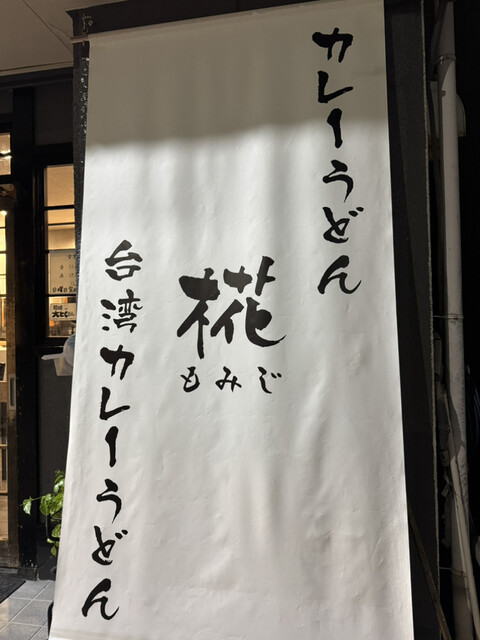 カレーうどん
椛
もみじ
台湾カレーうどん